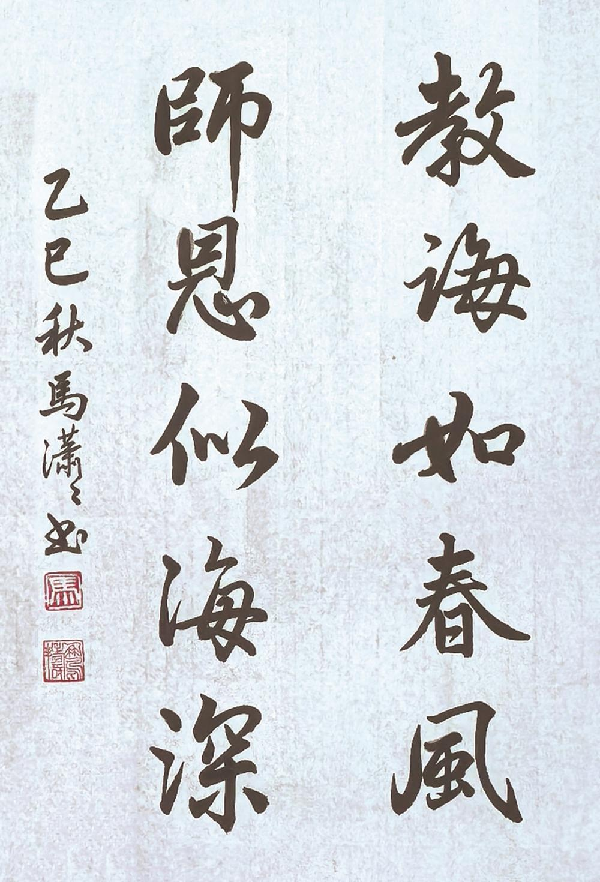 教诲如春風
師恩似海深
乙巳秋馬瀟々书